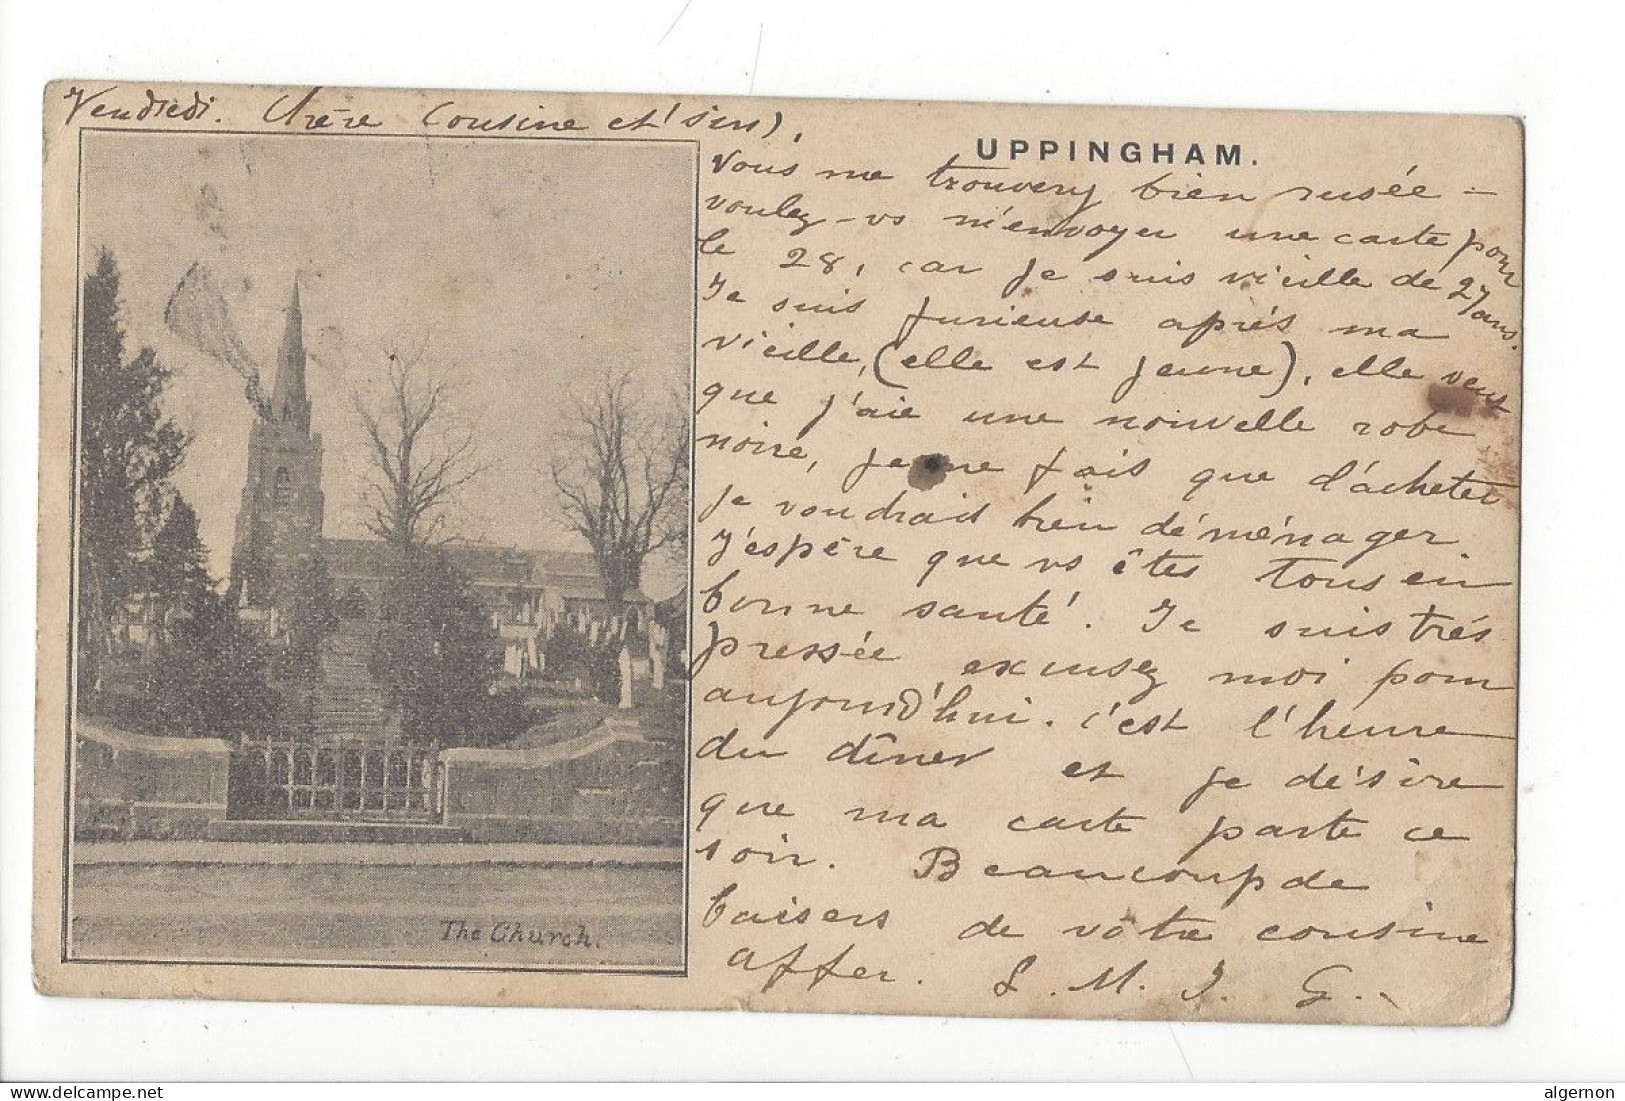 Vendredi. Chère Cousine et
UPPINGHAM.
Vous me trouverez bien rusée -
voulez-vs m'envoyer une carte pour
le 28, car je suis vieille de 27 ans.
Je suis furieuse après ma
vieille, (elle est jeune), elle veut
que j'aie une nouvelle robe
noire, je ne fais que d'acheter
je voudrais bien déménager.
J'espère que vs êtes tous en
bonne santé. Je suis très
pressée, excusez moi pour
aujourd'hui. c'est l'heure
du dîner et je désire
que ma carte parte ce
soir. Beaucoup de
baisers de vôtre cousine
affec. L. M. J. G.
The Church.
www.delcampe.net
algernon